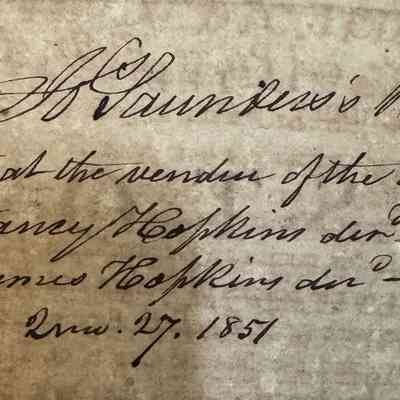 Saunders's
at the vendue of the
ancy Hopkins decd
ames Hopkins decd
2mo. 27. 1851